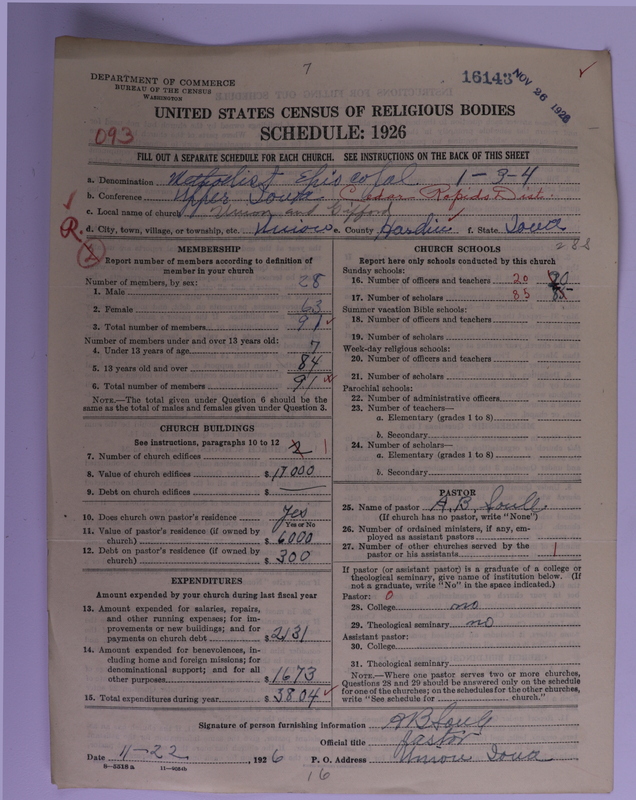 7
DEPARTMENT OF COMMERCE
BUREAU OF THE CENSUS
WASHINGTON
16143
NOV 26 1926
UNITED STATES CENSUS OF RELIGIOUS BODIES
SCHEDULE: 1926
093
FILL OUT A SEPARATE SCHEDULE FOR EACH CHURCH. SEE INSTRUCTIONS ON THE BACK OF THIS SHEET
a. Denomination Methodist Episcopal 1-3-4
b. Conference Upper Iowa Cedar Rapids Dist.
c. Local name of church Union and Gifford
d. City, town, village, or township, etc. Union e. County Hardin f. State Iowa
R. 2
288
MEMBERSHIP
Report number of members according to definition of
member in your church
Number of members, by sex:
1. Male 28
2. Female 63
3. Total number of members 91
Number of members under and over 13 years old:
4. Under 13 years of age 7
5. 13 years old and over 84
6. Total number of members 91
NOTE.—The total given under Question 6 should be
same as the total of males and females given under Question 3.
CHURCH BUILDINGS
See instructions, paragraphs 10 to 12
7. Number of church edifices 2 1
8. Value of church edifices $ 17000
9. Debt on church edifices $ —
10. Does church own pastor's residence yes
Yes or No
11. Value of pastor's residence (if owned by
church) $ 6000
12. Debt on pastor's residence (if owned by
church) $ 300
EXPENDITURES
Amount expended by your church during last fiscal year
13. Amount expended for salaries, repairs,
and other running expenses; for im-
provements or new buildings; and for
payments on church debt $ 2131
14. Amount expended for benevolences, in-
cluding home and foreign missions; for
denominational support; and for all
other purposes $ 1673
15. Total expenditures during year $ 3804
CHURCH SCHOOLS
Report here only schools conducted by this church
Sunday schools:
16. Number of officers and teachers 20 20
17. Number of scholars 85 85
Summer vacation Bible schools:
18. Number of officers and teachers
19. Number of scholars
Week-day religious schools:
20. Number of officers and teachers
21. Number of scholars
Parochial schools:
22. Number of administrative officers
23. Number of teachers—
a. Elementary (grades 1 to 8)
b. Secondary
24. Number of scholars—
a. Elementary (grades 1 to 8)
b. Secondary
PASTOR
25. Name of pastor A. B.
(If church has no pastor, write "None")
26. Number of ordained ministers, if any, em-
ployed as assistant pastors
27. Number of other churches served by the
pastor or his assistants 1
If pastor (or assistant pastor) is a graduate of a college or
theological seminary, give name of institution below. (If
not a graduate, write "No" in the space indicated.)
Pastor: 0
28. College no
29. Theological seminary no
Assistant pastor:
30. College
31. Theological seminary
NOTE.—Where one pastor serves two or more churches,
Questions 28 and 29 should be answered only on the schedule
for one of the churches; on the schedules for the other churches,
write "See schedule for church."
Signature of person furnishing information A B
Official title Pastor
Date 11-22, 1926 P. O. Address Union Iowa
8-5518 a 11-9084b
16